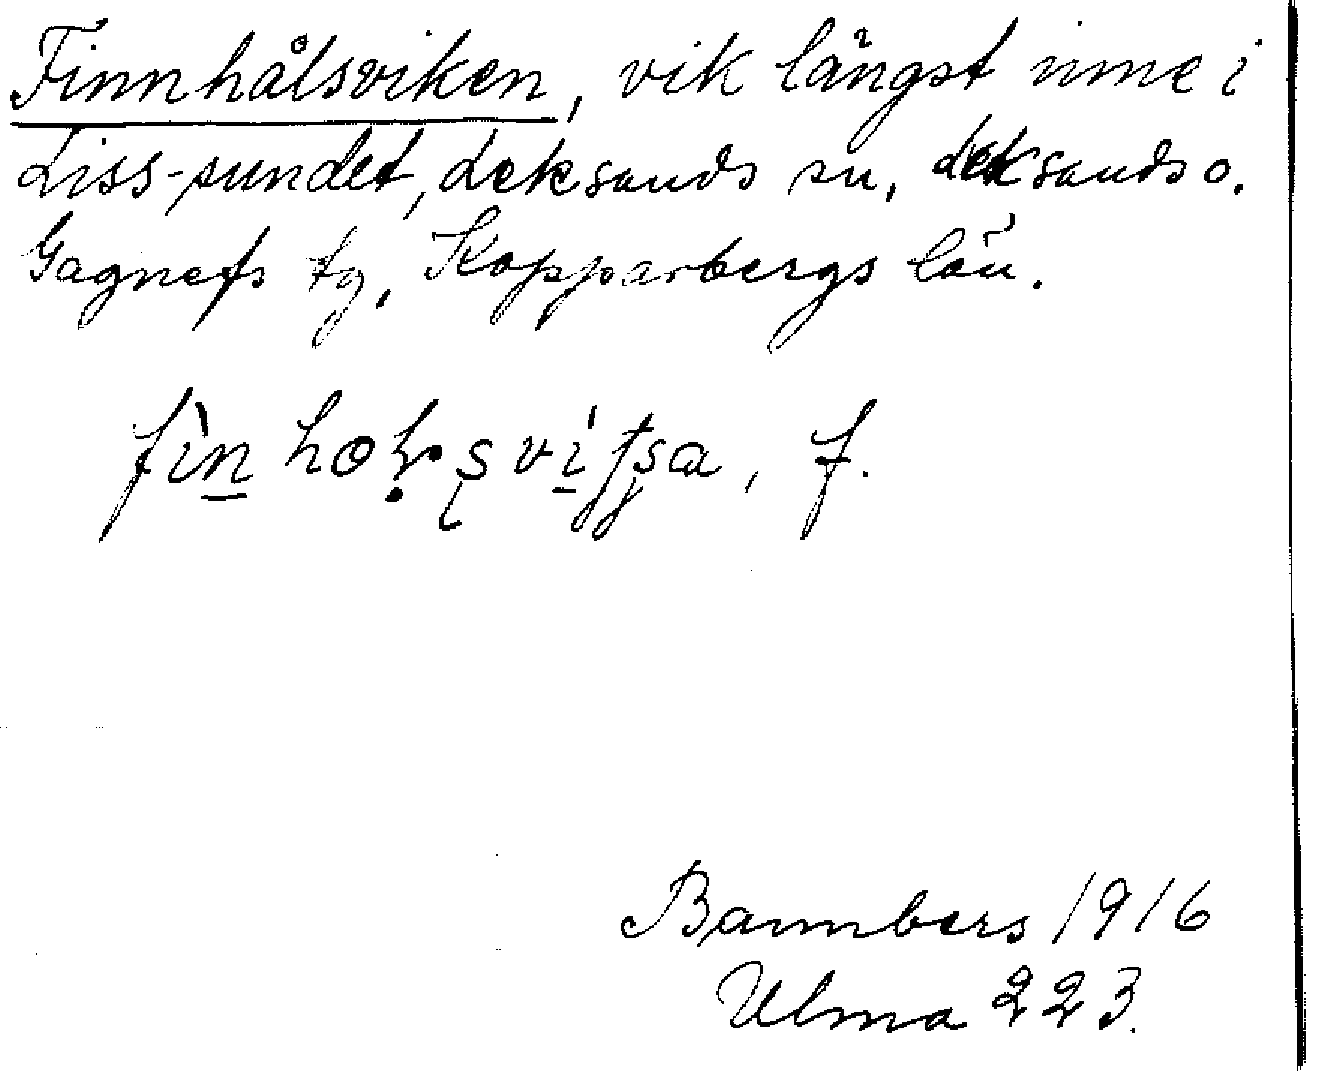 Finnhålsviken, vik längst inne i
Liss-sundet, Leksands sn, Leksands o.
Gagnefs tg, Kopparbergs län.
, f.
Bannbers 1916
Ulma 223.